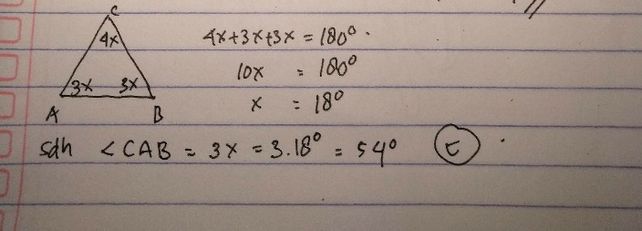 C
4x
3x 3x
A B
4x+3x+3x = 180°
10x = 180°
x = 18°
sdh <CAB = 3x = 3.18° = 54°